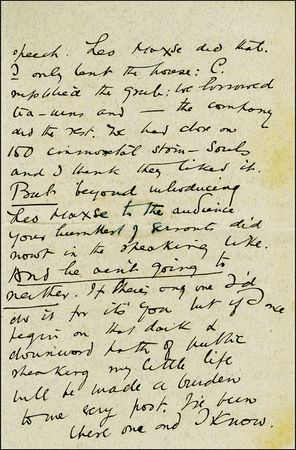 speech. Leo Maxse did that.
I only lent the house: C.
supplied the grub: we borrowed
tea-urns and — the company
did the rest. We had close on
150 immortal souls
and I think they liked it.
But beyond introducing
Leo Maxse to the audience
your humblest of servants did
nowt in the speaking line.
And he ain't going to
neither. If there's any one I'd
do it for it's you but if I once
begin on that dark &
downward path of public
speaking my little life
will be made a burden
to me every post. I've been
there one and I know.